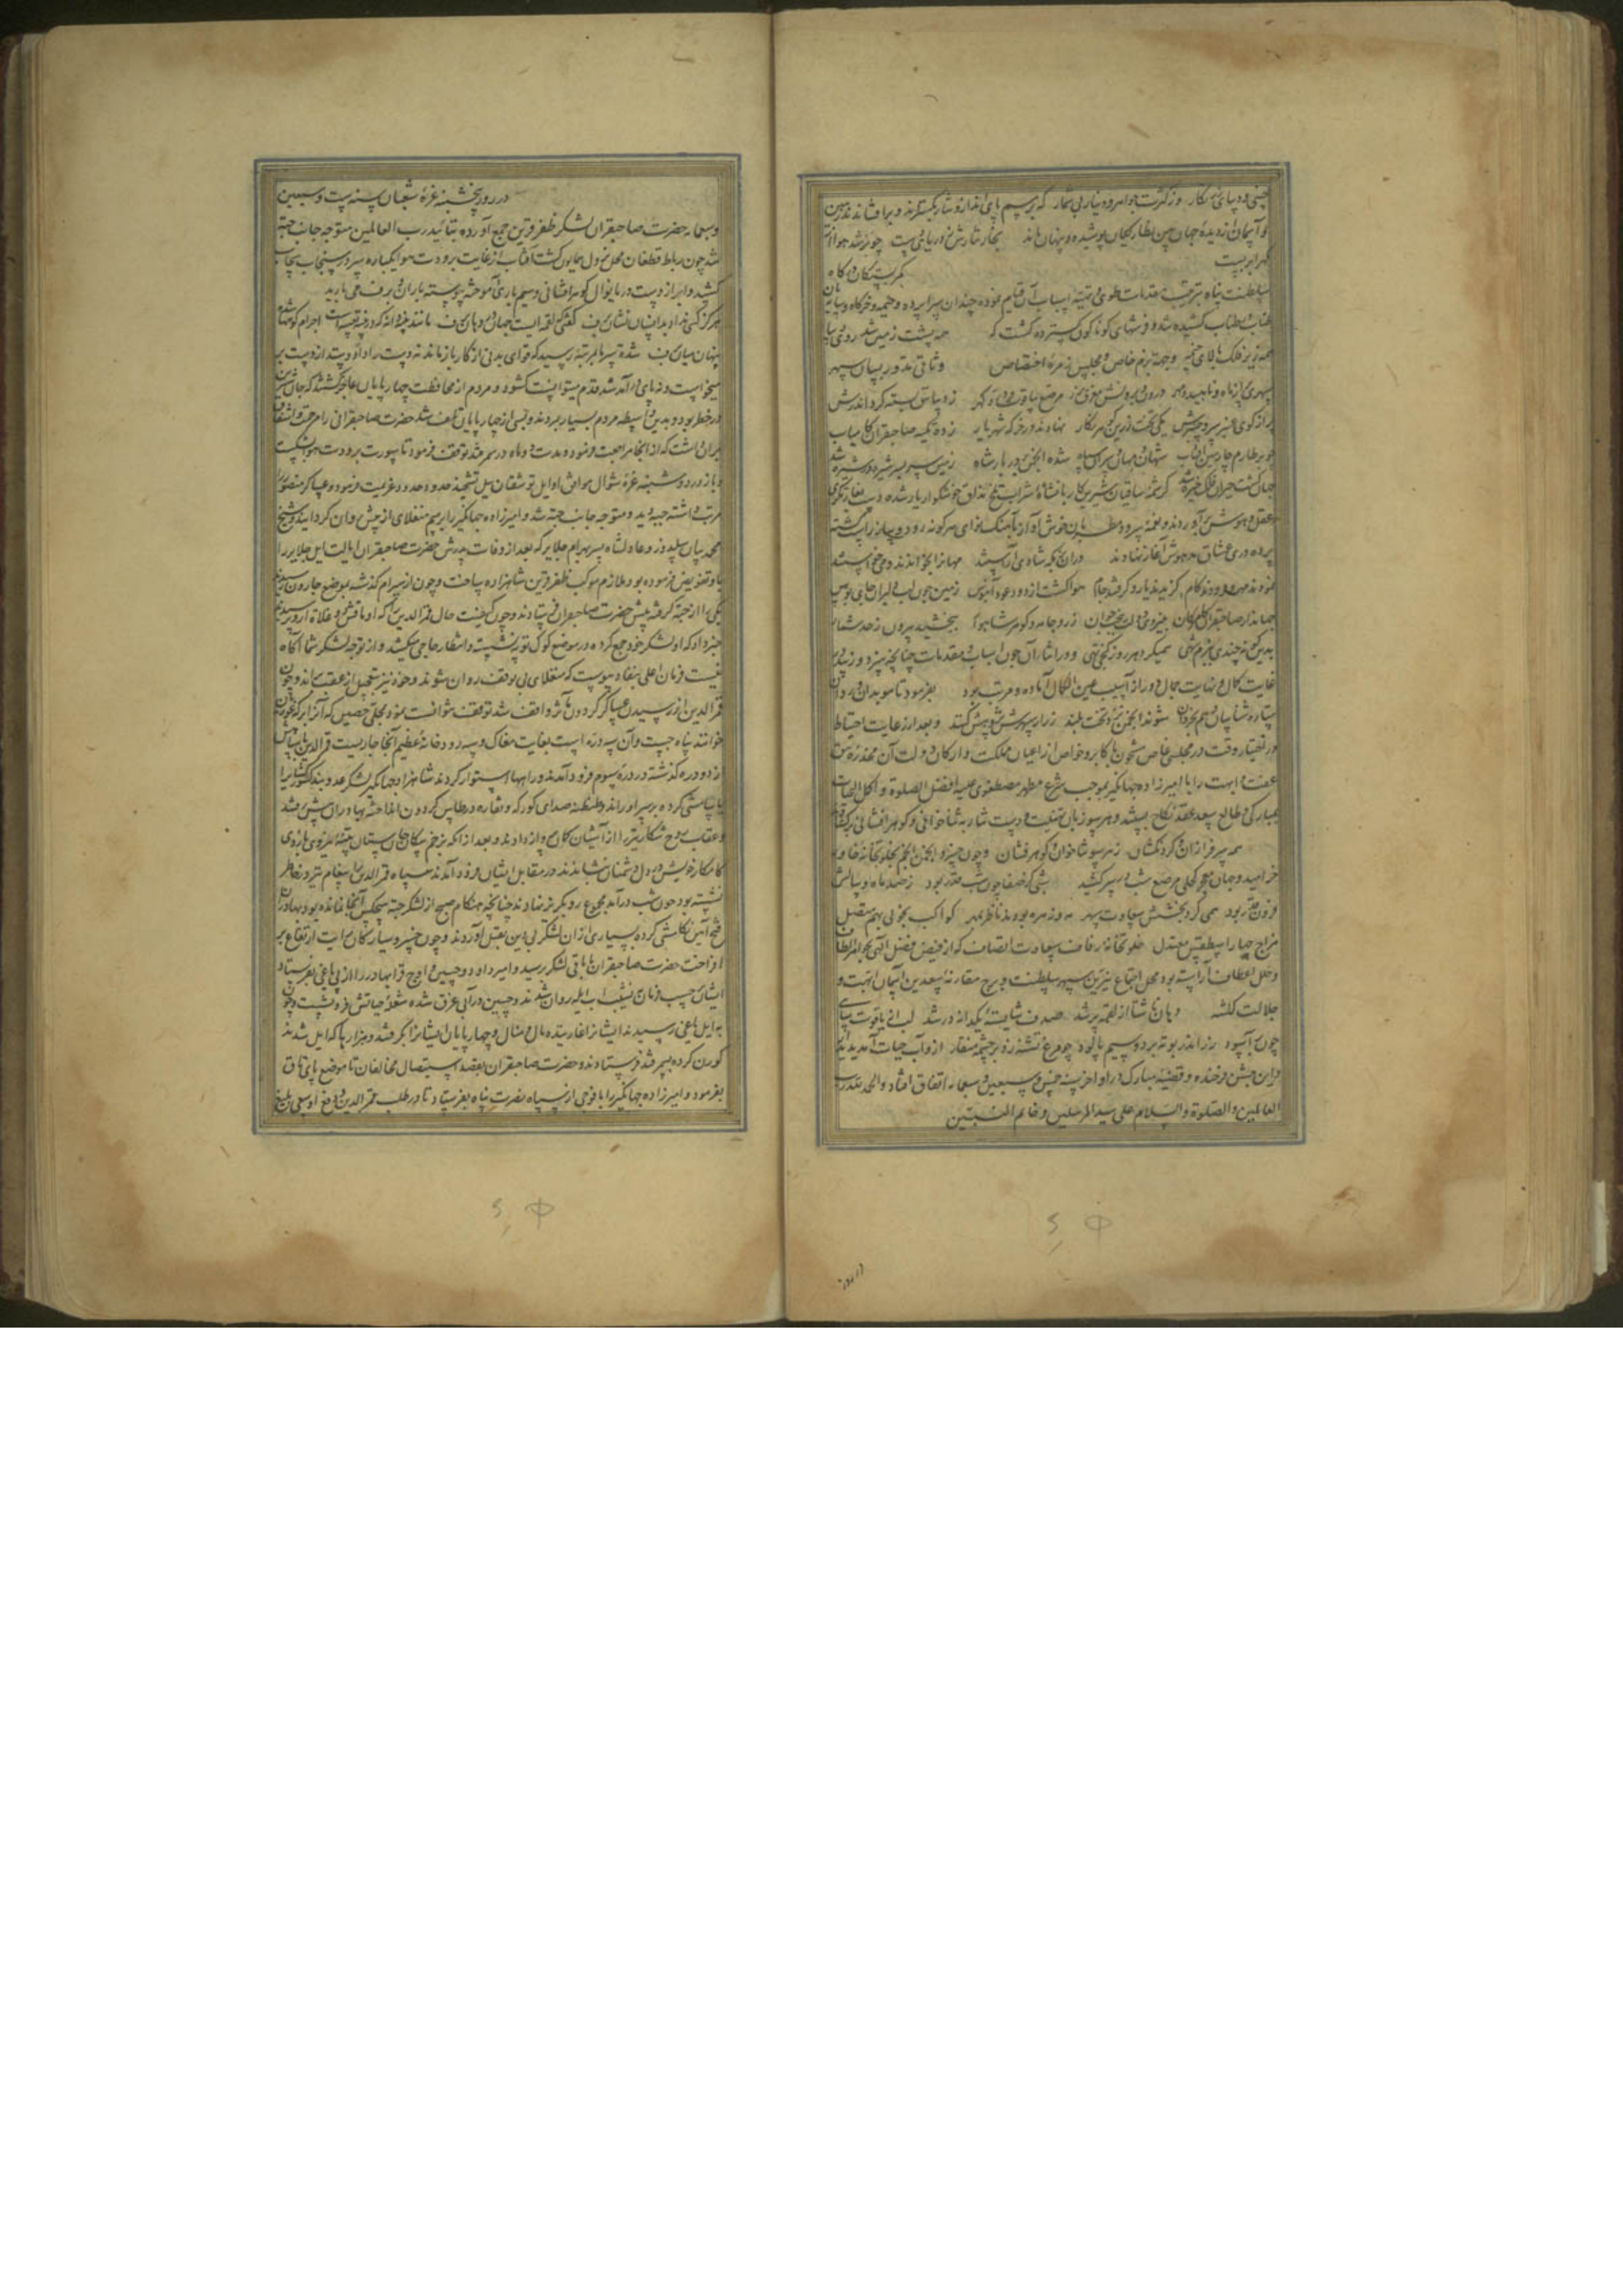 چینی و دیبای نگار وز کثرت جواهر و دینار بی شمار که برسم پای انداز و نثار بگسترند و برافشاندند زمین
و آسمان از دیده جهان بین نظارگیان پوشیده و پنهان ماند بخار نثارش ز دریا بی چو بر شد هوا
گهربار بیست کمر بستگان درگاه
سلطنت پناه بترتیب مقدمات طوی و تهیه اسباب آن قیام نموده چندان سراپرده و خیمه و خرگاه و سایبان
طناب در طناب کشیده شد و فرشهای گوناگون گسترده گشت که همه پشت زمین شد روی دیبا
همه زیر فلک بالای خیمه و جهة بزم خاص و مجلس زمره اختصاص وثاقی به ترتیب سپهر
سپهری پر از ماه و ناهید و مهر درون و برونش مرصع بیاقوت و در و گهر ز دیباش بسته کران درش
پر از گوی عنبر یکی تخت زرین نگار نهادند در خرگه شهریار زده تکیه صاحبقران کامیاب
چو بر طارم چارمین آفتاب شهان و مهان سراسر سپاه شده انجمن بر در بارگاه زمین سربسر
جهان گشت حیران فلک خیره شد کرشمه ساقیان شیرین کار بانشاء شراب تلخ مذاق خوشگوار یار شده دست بغارتگری
عقل و هوش برآوردند و نغمه سرود مطربان خوش آواز باهنگ نوای هرگونه رود و ساز
پرده دری عشاق مدهوش آغاز نهادند در آن بزمگه شادی آراستند مهان را بخواندند و می خواستند
نمودند مهر و ربودند کام گزیدند یار و گرفتند جام هوا گشت از دود عود آبنوس زمین چون لب دلبران جای بوس
جهاندار صاحبقران زر و جامه و گوهر شاهوار ببخشید بیرون ز حد شمار
بدین گونه چندی ببزم شهی همی کرد هر روز گنجی تهی و در اثنای آن چون اسباب و مقدمات چنانچه سزد و زیبد
غایت کمال و نهایت جمال دور از آسیب عین الکمال آماده و مرتب بود بفرمود تا موبدان و ردان
ستاره شناسان و هم بخردان شوند انجمن پیش تخت بلند ز راز سپهری پژوهش کنند و بعد از رعایت احتیاط
در اختیار وقت در مجلسی خاص مشحون باکابر و خواص از اعیان مملکت و ارکان دولت آن مخدره
عفت و ابهت را با امیرزاده جهانگیر بموجب شرع مطهر مصطفوی علیه افضل الصلوة و اکمل التحیات
بمبارکی و طالع سعد عقد نکاح ببستند و هر سو زبان تهنیت و دست نثار به ثناخوانی و گوهرافشانی برگشاد
همه سرفرازان و گردنکشان ز هر سو ثناخوان و گوهرفشان و چون خسرو انجمن انجم بخلوتخانه خاور
خرامید و جهان کحلی مرصع شب در سر کشید شبی کز صفا چون شب قدر بود ز صد ماه و سالش
فزون قدر بود همی کرد بخشش سعادت سپهر مه و زهره بودند ناظر بمهر کواکب بخوبی بهم متصل
مزاج چهار اسطقس معتدل خلوتخانه زفاف سعادت اتصاف که از فیض فضل الهی بجواهر الطاف
و حلل اعطاف آراسته بود محل اجتماع نیرین سپهر سلطنت و برج مقارنه سعدین آسمان ابهت و
جلالت گشته دهان تا شتا از لقمه پر شد صدف شایسته یکدانه در شد
چون آسود زر اندر بوته برد و سیم پالود چو مرغ تشنه زد بر چشمه منقار ازو آب حیات آمد پدیدار
و این جشن فرخنده و قضیه مبارک در اواخر سنه خمس و سبعین و سبعمایه اتفاق افتاد والحمد لله رب
العالمین والصلوة والسلام علی سید المرسلین و خاتم النبیین
در روز
در روز پنجشنبه غره شعبان سنه ست و سبعین
و سبعمایه حضرت صاحبقران لشکر ظفر قرین جمع آورده بتائید رب العالمین متوجه جانب جته
شد چون رباط قطغان محل نزول همایون گشت آفتاب از غایت برودت هوا یکباره سر در سنجاب سحاب
کشید و ابر از دست دریا نوال گوهرافشانی و سیم باری آموخته پیوسته باران و برف می بارید
هرگز کسی نداد بدانسان نشان برف گفتی که لقمه ایست جهان در دهان برف مانند پنبه دانه که در پنبه تعبیه است اجرام کوهها
پنهان میان برف شدت سرما بمرتبه رسید که قوای بدنی از کار باز ماند نه دست را داد و ستد از دست بر
میخواست و نه پای را آمد شد قدم میتوانست گشود و مردم از محافظت چهارپایان عاجز گشتند که جانشان
در خطر بود و بدین واسطه مردم بسیار بمردند و بسی از چهارپایان تلف شد حضرت صاحبقرانی را مرحمت و اشفاق
بر آن داشت که از آنجا مراجعت نمود و مدت دو ماه در سمرقند توقف فرمود تا سورت برودت هوا شکست
و باز در روز دوشنبه غره شوال موافق اوایل توشقان ییل تشحیذ حدود عزیمت فرمود و عساکر منصور
مرتب داشته جیبه دید و متوجه جانب جته شد و امیرزاده جهانگیر را برسم منغلای از پیش روان گردانید و شیخ
محمد بیان سلدوز و عادلشاه پسر بهرام جلایر که بعد از وفات پدرش حضرت صاحبقران ایالت ایل جلایر را
باو تفویض فرموده بود ملازم موکب ظفر قرین شاهزاده ساخت و چون از سیرام گذشته بموضع جارون رسیدند
یکی را از جته گرفته پیش حضرت صاحبقران فرستادند و چون کیفیت حال قمرالدین را که اوماقش دوغلات بود پرسیدند
خبر داد که او لشکر خود جمع کرده در موضع کوک توپه نشسته و انتظار حاجی بیک میکشد و از توجه لشکر شما آگاه
نیست فرمان اعلی بنفاذ پیوست که منغلای بی توقف روان شوند و خود نیز بتعجیل از عقب براند و چون
قمرالدین از رسیدن عساکر گردون مآثر واقف شد توقف نتوانست نمود بمحلی حصین که آن را برکه غوریان
خوانند پناه جست و آن سه دره است بغایت مغاک و سه رودخانه عظیم آنجا جاریست قمرالدین با سپاه
از دو دره گذشته در دره سوم فرود آمدند و راهها استوار کردند شاهزاده جهانگیر لشکر عدو بند کشورگشا را
یاسامشی کرده بر سر او راند و طنطنه صدای کورکه و نقاره در طاس گردون انداخته بهادران پیش رفتند
و عقاب روح شکار تیر را از آشیان کمان پرواز دادند و بعد از آنکه بزخم پیکان جان ستان بقوت بازوی
کامکار خویش در دل دشمنان نشاندند در مقابل ایشان فرود آمدند سپاه قمرالدین را پیغام تیر در خاطر
نشسته بود چون شب درآمد بمجموع رو بگریز نهادند چنانچه هنگام صبح از لشکر جته هیچکس آنجا نمانده بود بهادران
فتح آئین تکامشی کرده بسیاری از آن لشکر بی دین بقتل آوردند و چون خسرو سیارگان رایت ارتفاع بر
افراخت حضرت صاحبقران با باقی لشکر رسید و امیر داود و حسین و اوچ قرا بهادر را از پی یاغی بفرستاد
ایشان حسب فرمان بنشیب آب ایله روان شدند و حسین در آب غرق شده شعله حیاتش فرو نشست و چون
به ایل یاغی رسیدند ایشان را غارتیده مال و منال و چهارپایان ایشان را بگرفتند و هزارها که ایل شدند
کوران کرده بسمرقند فرستادند و حضرت صاحبقران بقصد استیصال مخالفان تا موضع پای تاق
بفرمود و امیرزاده جهانگیر را با فوجی از سپاه نصرت پناه بفرستاد تا در طلب قمرالدین و دفع او سعی بلیغ